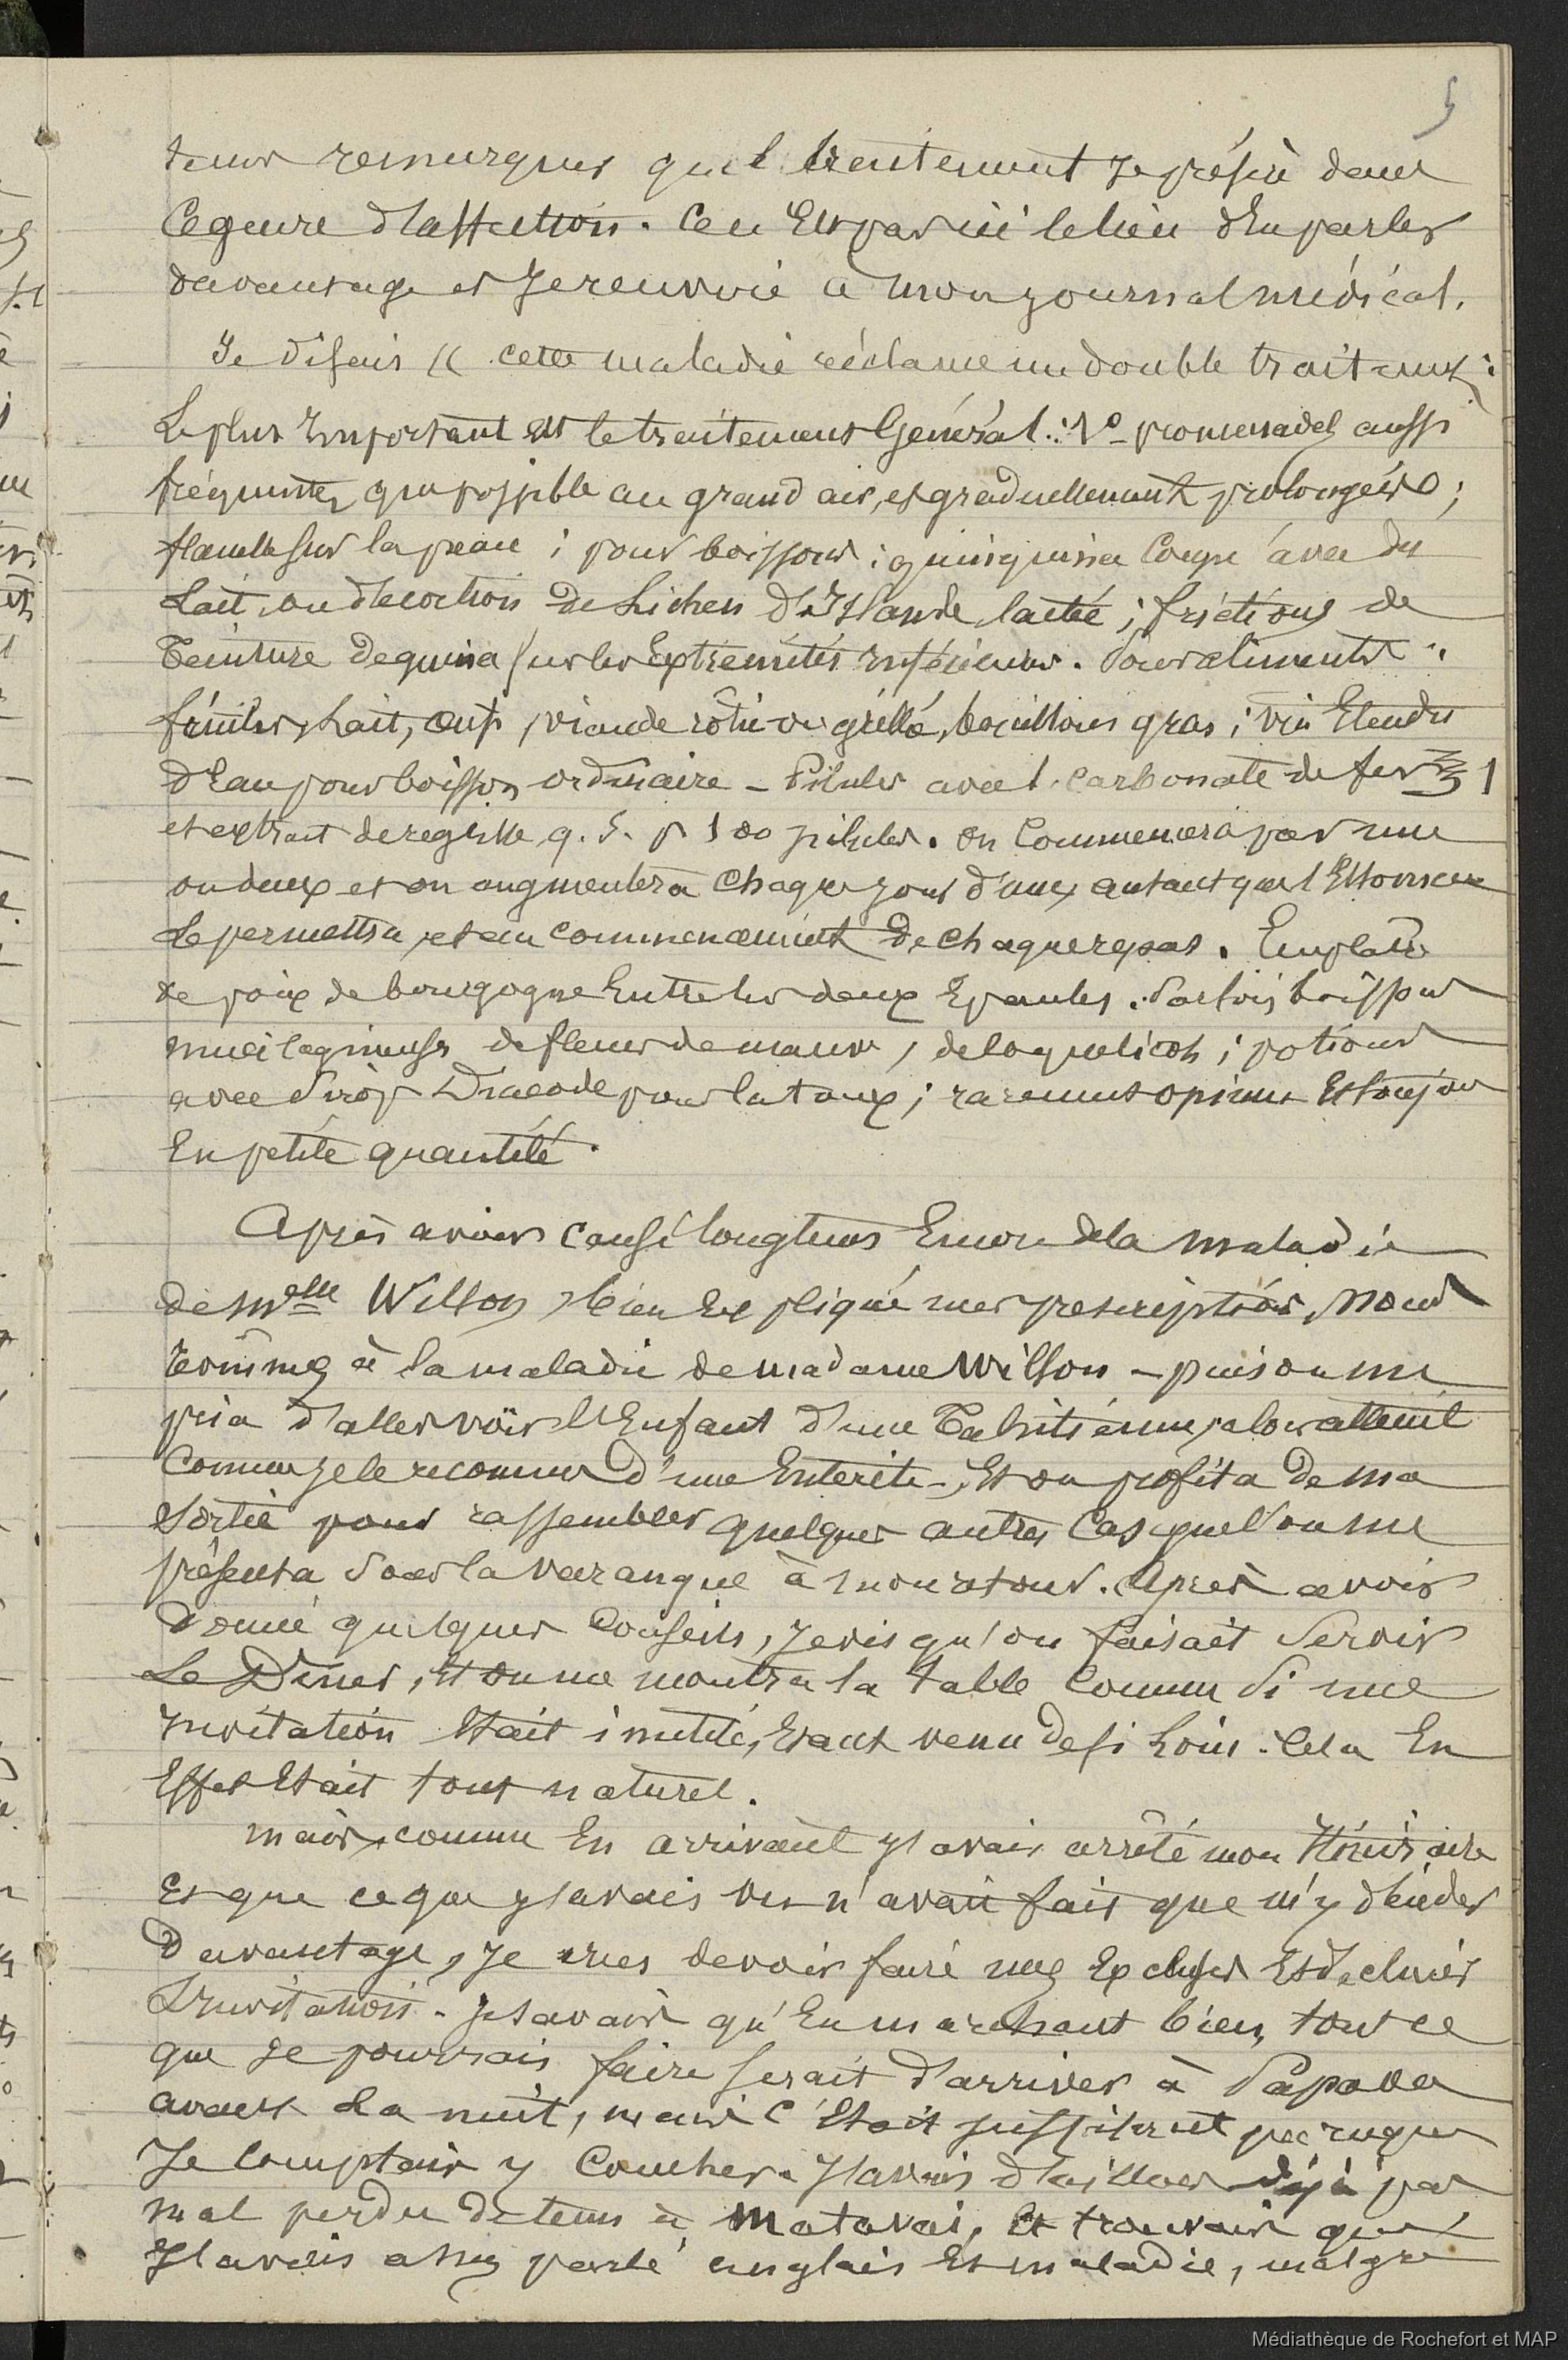 5
remarquer quel traitement je préfère dans
Ce genre d'affection. Ce n'Est pas ici le lieu d'En parler
davantage et Je renvoie à mon journal médical.
Je disais « cette maladie réclame un double traitement :
Le plus Important est le traitement Général : 1º promenades aussi
fréquentes que possible au grand air, et graduellement prolongées ;
flanelle sur la peau ; pour boissons : quinquina Coupé avec du
Lait, ou décoction De Lichen d'Islande lactée ; frictions de
Teinture de quina sur les Extrémités Inférieures. Pour aliments :
fécules, Lait, œufs, viande rôtie ou grillée, bouillons gras ; vin Etendu
d'Eau pour boisson ordinaire - Pilules avec carbonate de fer ʒ 1
et extrait de reglisse q. S. p 100 pilules. On Commencera par une
ou deux et on augmentera Chaque jour d'une, autant que l'Estomac
Le permettra, et au commencement De chaque repas. Emplâtre
de poix de bourgogne Entre les deux Epaules. Parfois boissons
mucilagineuses de fleurs de mauve, de coquelicots ; potions
avec Sirop Diacode pour la toux ; rarement opium Et toujours
En petite quantité.
Après avoir causé longtems Encore de la maladie
de Melle Wilson, bien Expliqué mes prescriptions, Nous
à la maladie de madame Wilson - puis on me
pria d'aller voir l'Enfant d'une Tahitienne, alors atteint
Comme je le reconnus d'une Enterite - Et on profita De ma
Sortie pour rassembler quelques autres Cas que l'on me
présenta Sous la varangue à mon retour. Après avoir
Donné quelques Conseils, Je vis qu'on faisait Servir
Le Diner, Et on me montra la table Comme Si une
Invitation Etait inutile, Etant venu De si Loin. Cela En
Effet Etait tout naturel.
mais, comme En arrivant J'avais arrêté mon Itinéraire
Et que ce que J'avais vu n'avait fait que m'y décider
Davantage, Je crus devoir faire mes Excuses Et décliner
L'Invitation. Je savais qu'En marchant bien, tout ce
que Je pourrais faire Serait D'arriver à
avant La nuit, mais C'Etait suffisant parceque
Je Comptais y Coucher. J'avais d'ailleurs déjà pas
mal perdu De tems à Matavai, Et trouvais que
J'avais assez parlé anglais Et maladie, malgré
Médiathèque de Rochefort et MAP